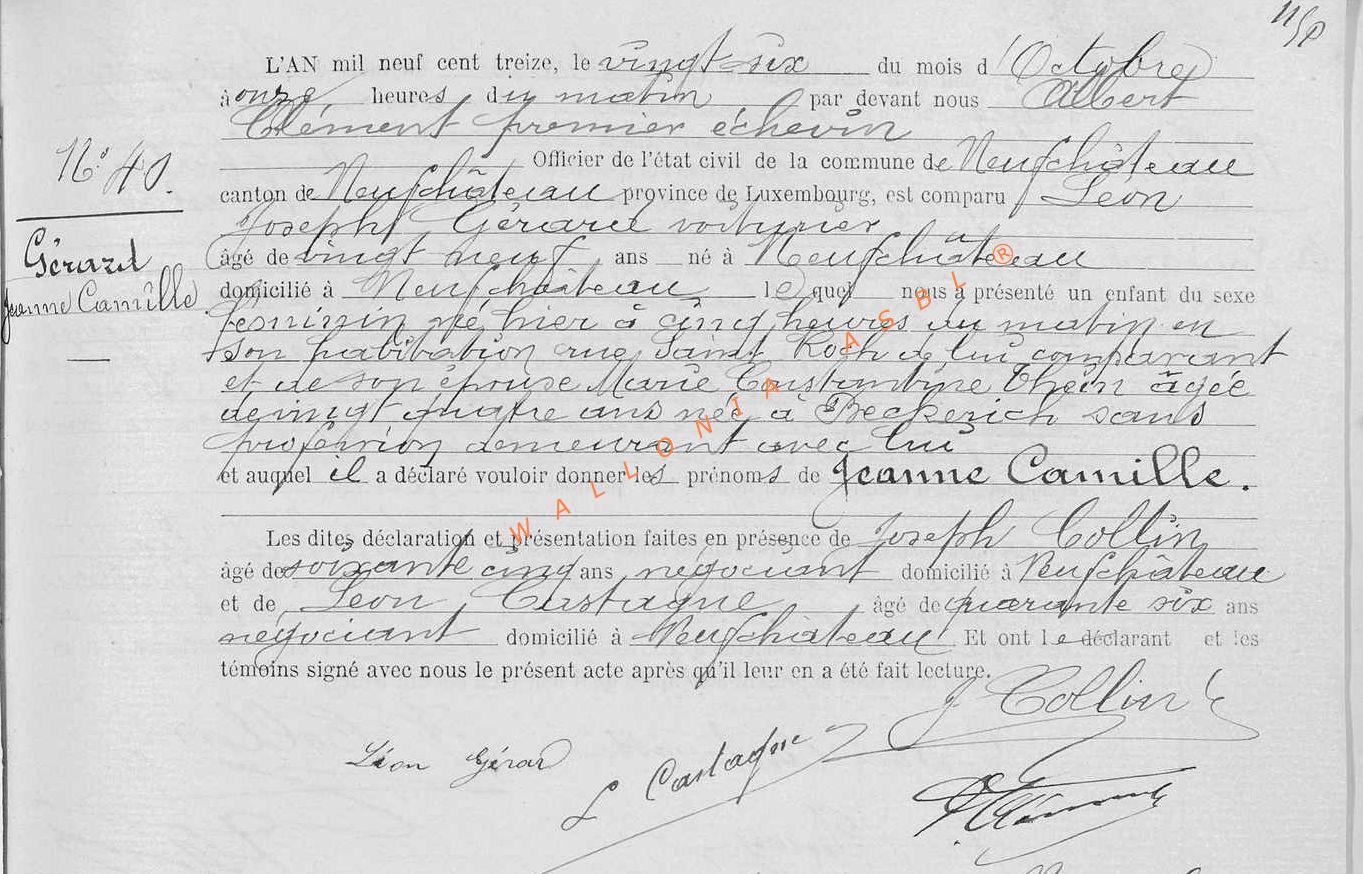 11/50
L'AN mil neuf cent treize, le vingt-six du mois d'Octobre
à onze heures du matin par devant nous Albert
Clément premier échevin
N° 40.
Officier de l'état civil de la commune de Neufchâteau
canton de Neufchâteau province de Luxembourg, est comparu Léon
Joseph Gérard voiturier
Gérard
Jeanne Camille
âgé de vingt neuf ans né à Neufchâteau
domicilié à Neufchâteau lequel nous a présenté un enfant du sexe
féminin né hier à cinq heures du matin en
son habitation rue Saint Roch de lui comparant
et de son épouse Marie Constantine Thein âgée
de vingt quatre ans née à Beckerich sans
profession demeurant avec lui
et auquel il a déclaré vouloir donner les prénoms de Jeanne Camille.
Les dites déclaration et présentation faites en présence de Joseph Collin
âgé de soixante cinq ans négociant domicilié à Neufchâteau
et de Léon Castagne âgé de quarante six ans
négociant domicilié à Neufchâteau Et ont le déclarant et les
témoins signé avec nous le présent acte après qu'il leur en a été fait lecture.
J Collin
Léon Gérard
L Castagne
AClément
WALLONIA ASBL ®